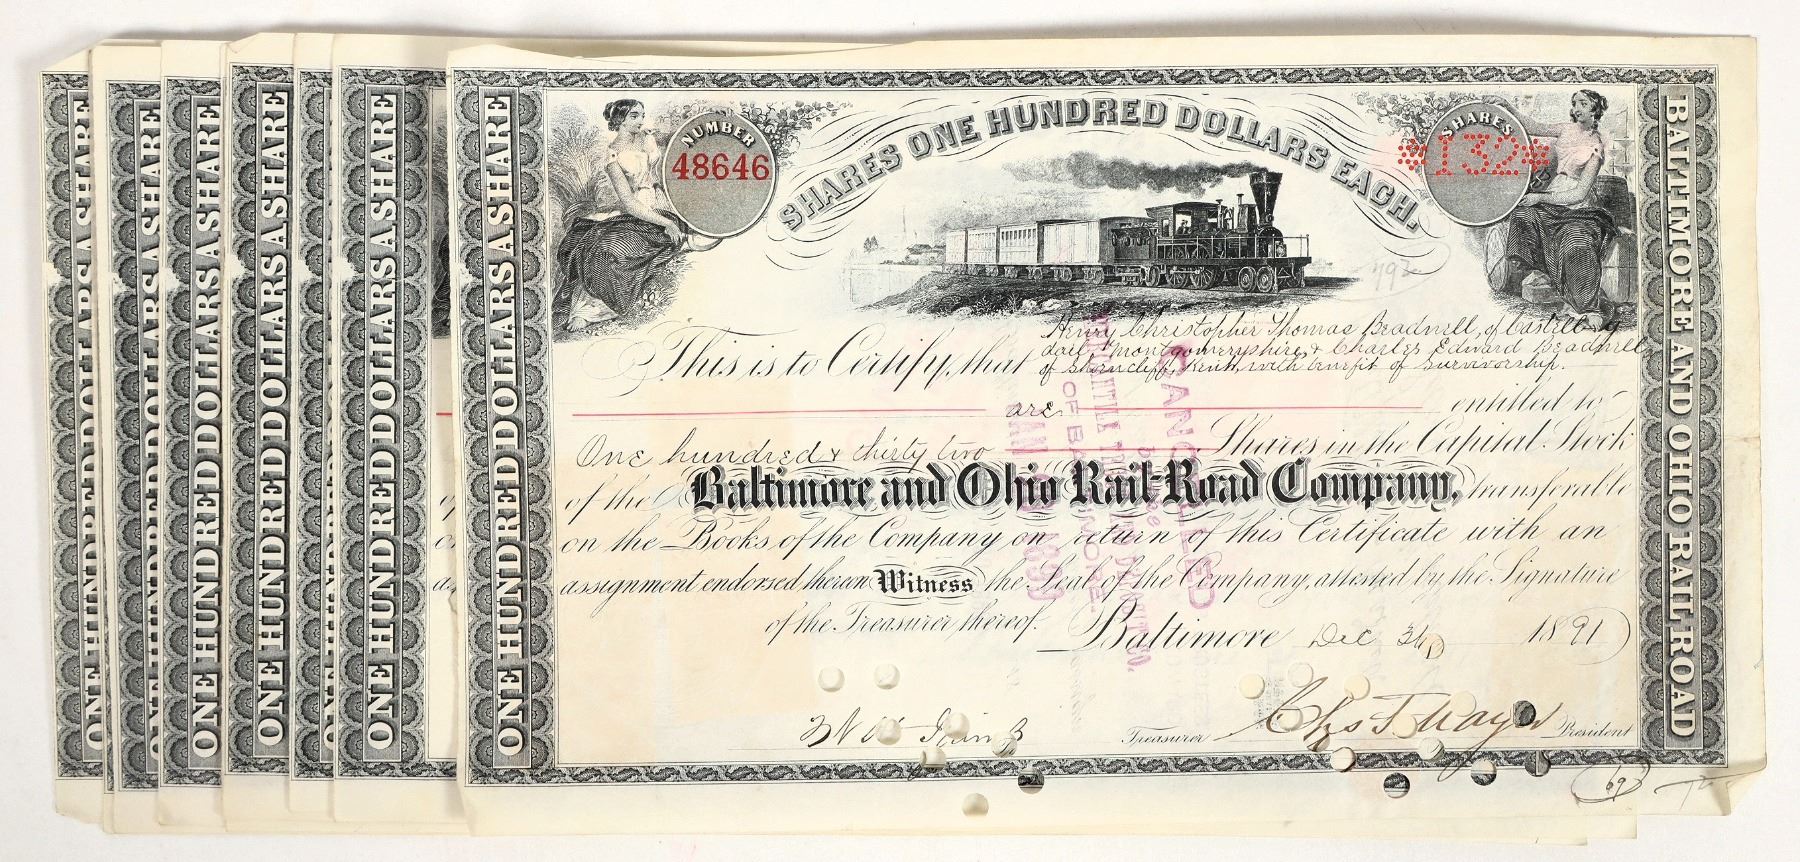 ONE HUNDRED DOLLARS A SHARE
ONE HUNDRED DOLLARS A SHARE
ONE HUNDRED DOLLARS A SHARE
ONE HUNDRED DOLLARS A SHARE
ONE HUNDRED DOLLARS A SHARE
ONE HUNDRED DOLLARS A SHARE
NUMBER
48646
SHARES ONE HUNDRED DOLLARS EACH.
SHARES
*132*
BALTIMORE AND OHIO RAIL ROAD
Henry Christopher Thomas Beadnell, of
This is to Certify, that
Montgomeryshire & Charles Edward Beadnell
of Shorncliff, Kent, with benefit of Survivorship.
are entitled to
One hundred & thirty two Shares in the Capital Stock
of the Baltimore and Ohio Rail-Road Company, transferable
on the Books of the Company on return of this Certificate with an
assignment endorsed thereon Witness the Seal of the Company, attested by the Signature
of the Treasurer thereof. Baltimore Dec 1891
Treasurer President
CANCELLED
OF BALTIMORE.